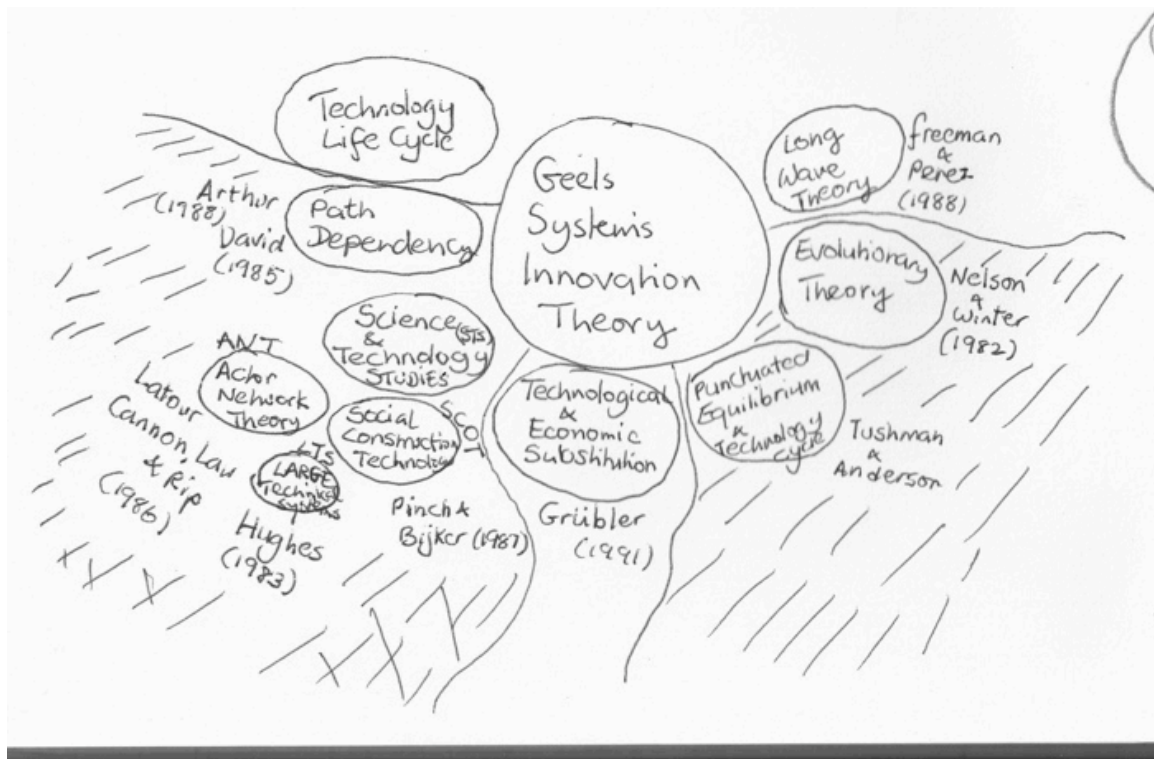 Technology
Life Cycle
Arthur
(1988)
David
(1985)
Path
Dependency
Geels
Systems
Innovation
Theory
Long
Wave
Theory
freeman
&
Perez
(1988)
Evolutionary
Theory
Nelson
&
Winter
(1982)
Science (STS)
&
Technology
STUDIES
ANT
Actor
Network
Theory
Latour
Cannon, Law
& Rip
(1986)
Social
Construction
Technology
SCOT
Pinch &
Bijker (1987)
LTS
LARGE
Technical
Systems
Hughes
(1983)
Technological
&
Economic
Substitution
Grübler
(1991)
Punctuated
Equilibrium
&
Technology
cycle
Tushman
&
Anderson